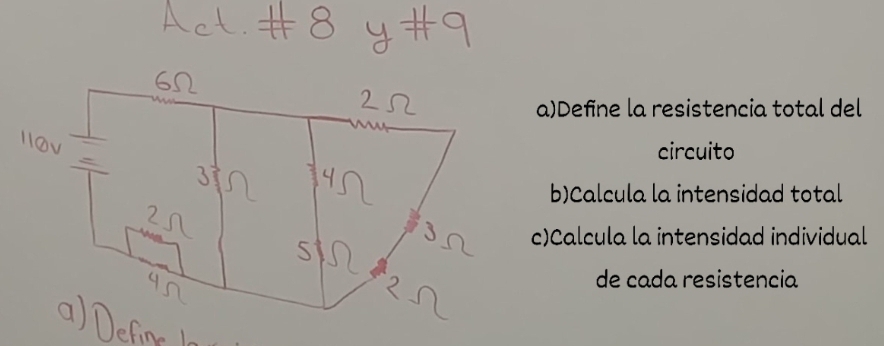 Act. # 8 y #9
6Ω
2Ω
110v
3Ω
4Ω
2Ω
3Ω
5Ω
4Ω
2Ω
a) Define
a)Define la resistencia total del
circuito
b)Calcula la intensidad total
c)Calcula la intensidad individual
de cada resistencia